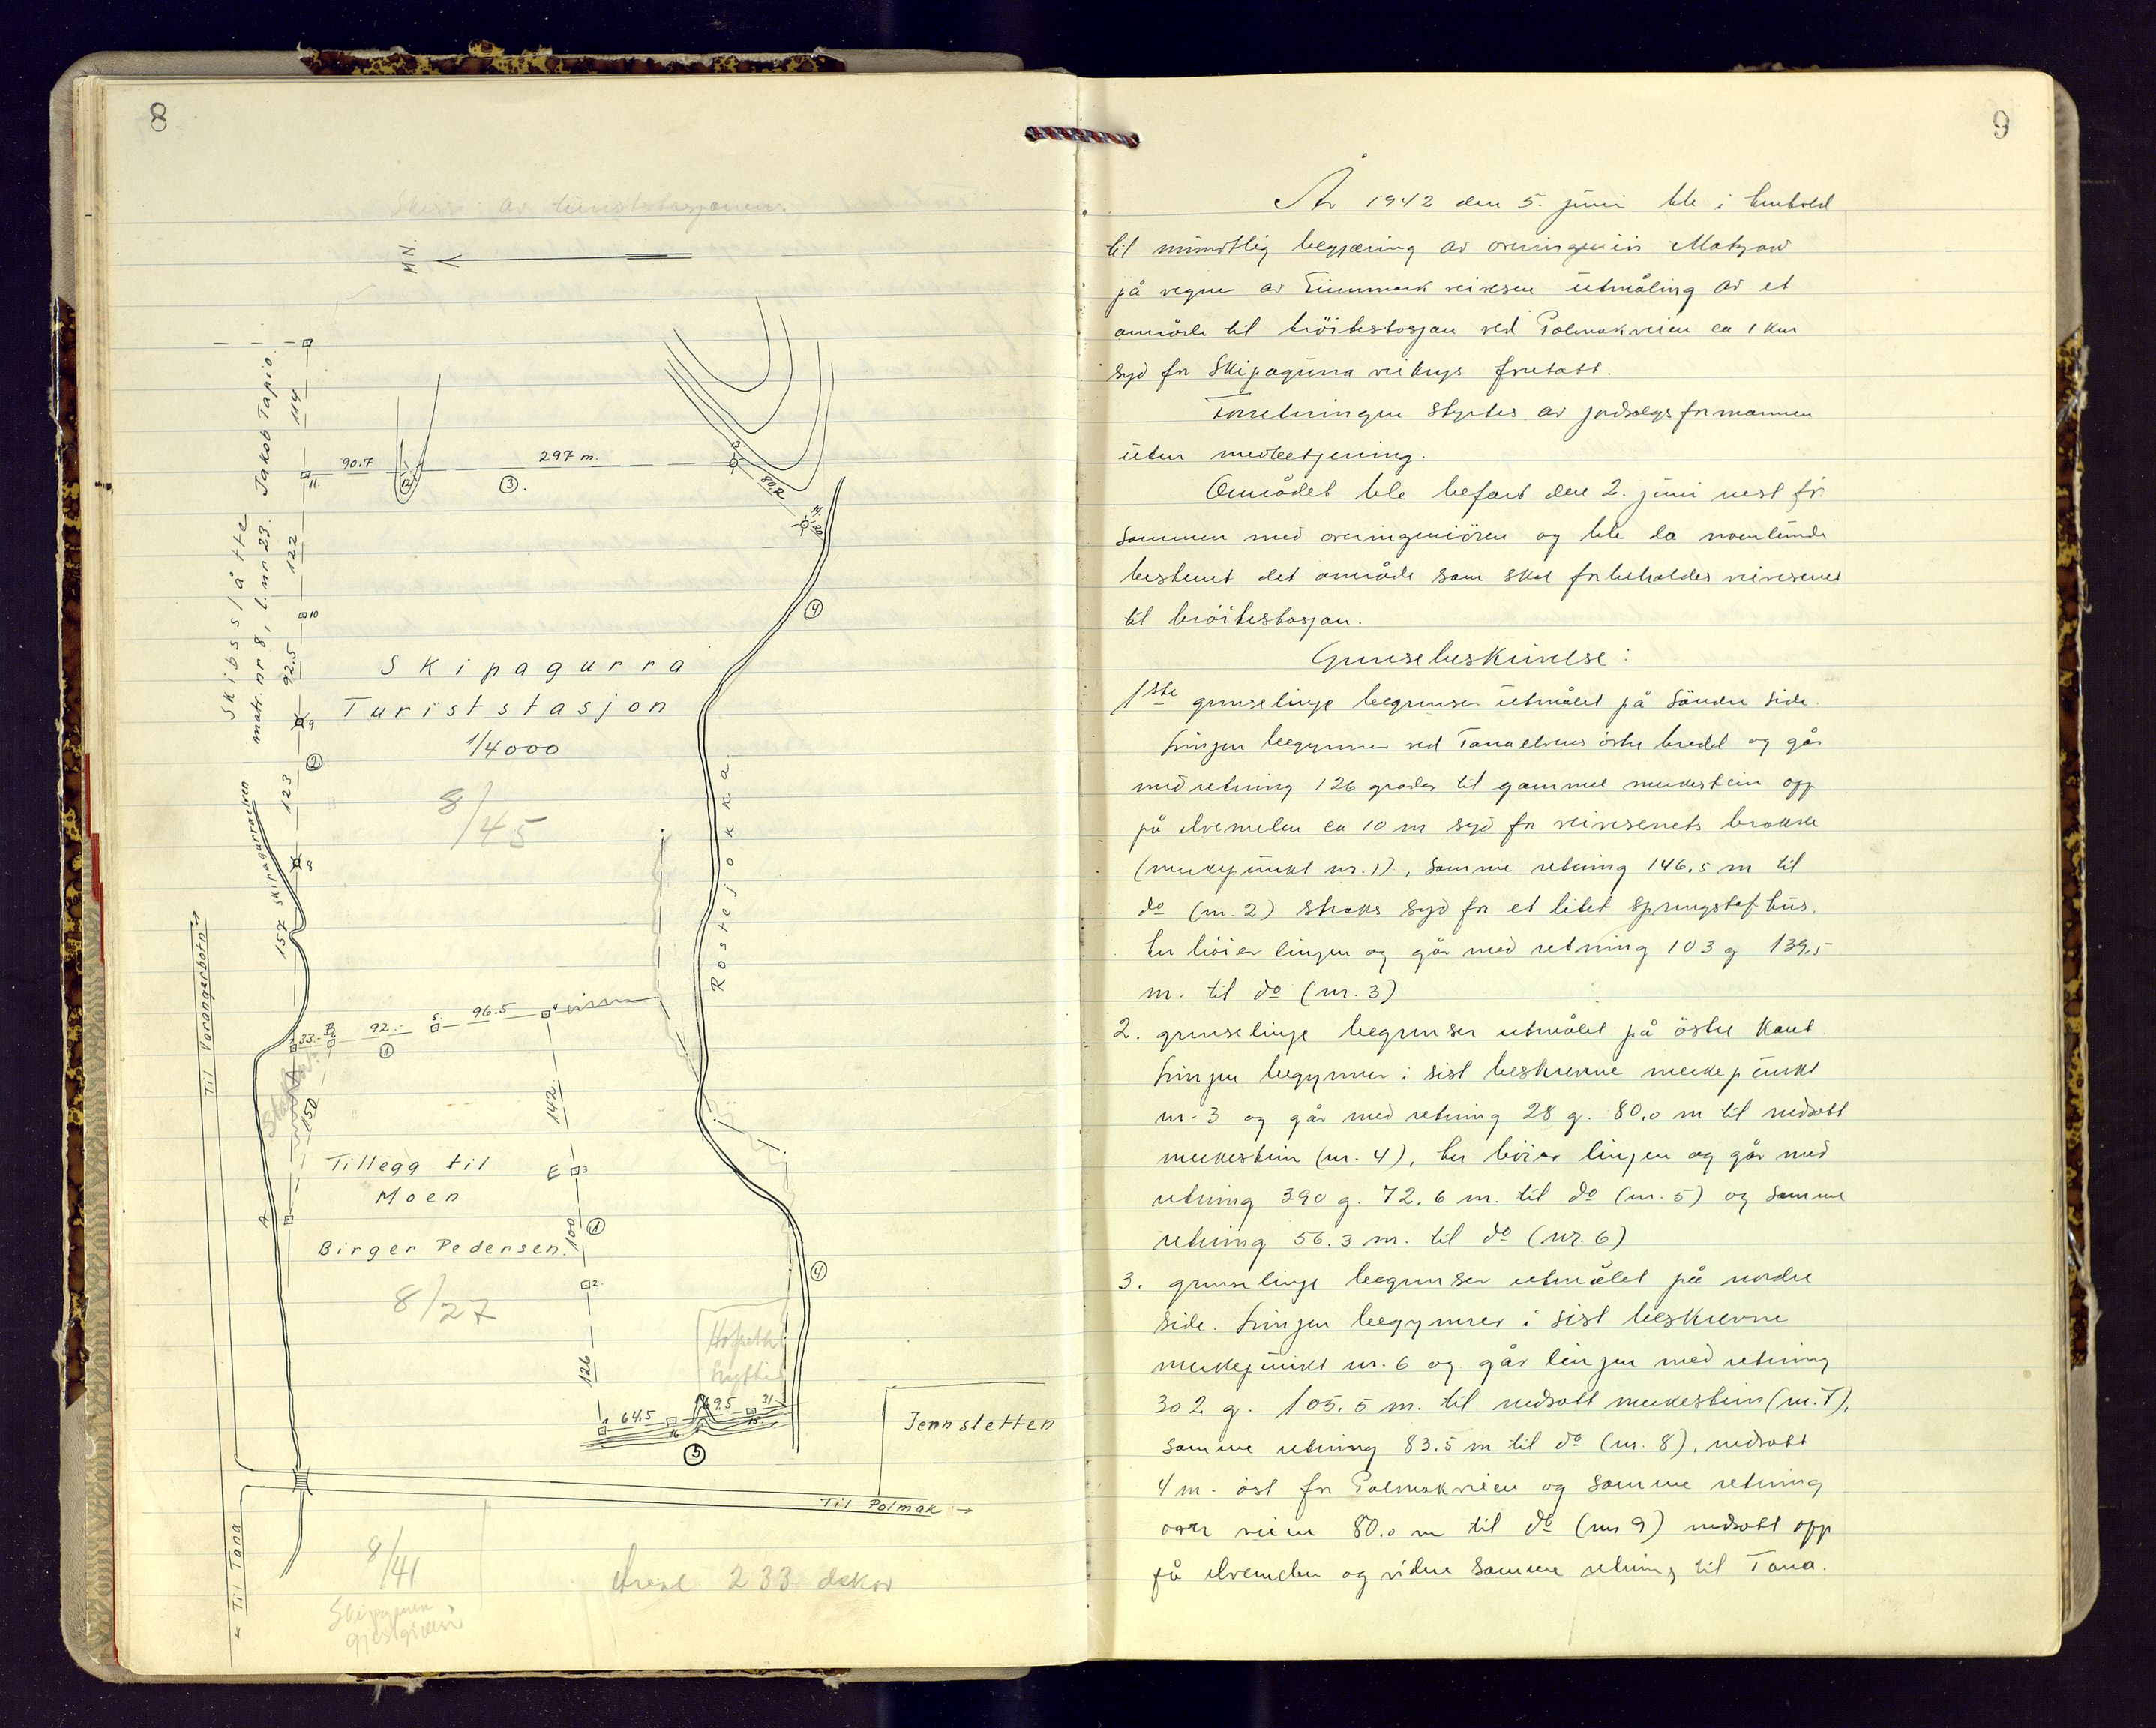 8
Skisse av turiststasjonen.
MN.
Skibsslåtte
matr. nr 8, l.nr 23. Jakob Tapio.
114
122
92.5
123
157
Skipagurraelven
90.7
11.
12.
297 m.
3.
13.
80.2
14.
20
4
10
9
2
8
Skipagurra
Turiststasjon
1/4000
8/45
Rostejokka.
Til Varangerbotn →
33.
B
92.-
5.
96.5
1
150
142
Tillegg til
Moen
Birger Pedersen.
8/27
A
E
3
100
1
2.
126
4
1
64.5
16
69.5
15.
31.-
5
Jennsletten
Til Polmak →
← Til Tana
8/41
Skipagurra
gjestgiveri
Areal 233 dekar
9
År 1942 den 5. juni ble i henhold
til muntlig begjæring av overingeniör Matzow
på vegne av Finnmark veivesen utmåling av et
område til bröitestasjon ved Polmakveien ca 1 km
syd for Skipagurra veikrys foretatt.
Forretningen styrtes av jordsalgsformannen
uten medbetjening.
Området ble befart den 2. juni nest för
sammen med overingeniören og ble da noenlunde
bestemt det område som skal forbeholdes veivesenet
til bröitestasjon.
Grensebeskrivelse:
1ste grenselinje begrenser utmålet på söndre side.
Linjen begynner ved Tanaelvens östre bredd og går
med retning 126 grader til gammel merkestein opp
på elvemelen ca 10 m syd for veivesenets brakke
(merkepunkt nr. 1), samme retning 146.5 m til
do (nr. 2) straks syd for et litet sprengstof-hus.
her böier linjen og går med retning 103 g 139.5
m. til do (nr. 3)
2. grenselinje begrenser utmålet på östre kant
Linjen begynner i sist beskrevne merkepunkt
nr. 3 og går med retning 28 g. 80.0 m til nedsatt
merkestein (nr. 4), her böier linjen og går med
retning 390 g. 72.6 m. til do (nr. 5) og samme
retning 56.3 m. til do (nr. 6)
3. grenselinje begrenser utmålet på nordre
side. Linjen begynner i sist beskrevne
merkepunkt nr. 6 og går linjen med retning
302 g. 105.5 m. til nedsatt merkestein (nr. 7),
samme retning 83.5 m til do (nr. 8), nedsatt
4 m. öst for Polmakveien og samme retning
over veien 80.0 m til do (nr 9) nedsatt opp
på elvemelen og videre samme retning til Tana.